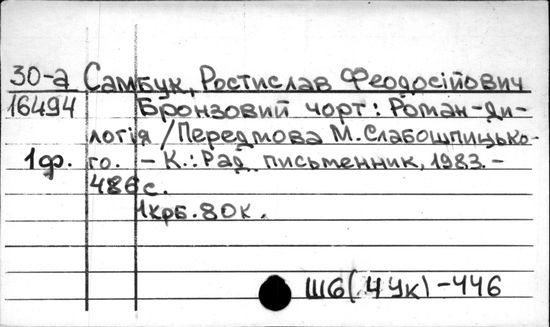 30-а Самбук, Ростислав Феодосійович
16494 Бронзовий чорт: Роман-ди-
логія / Передмова М. Слабошпицько-
1ф. го. – К.: Рад. письменник, 1983. –
486 с.
1крб. 80к.
Ш6(4Ук)-446